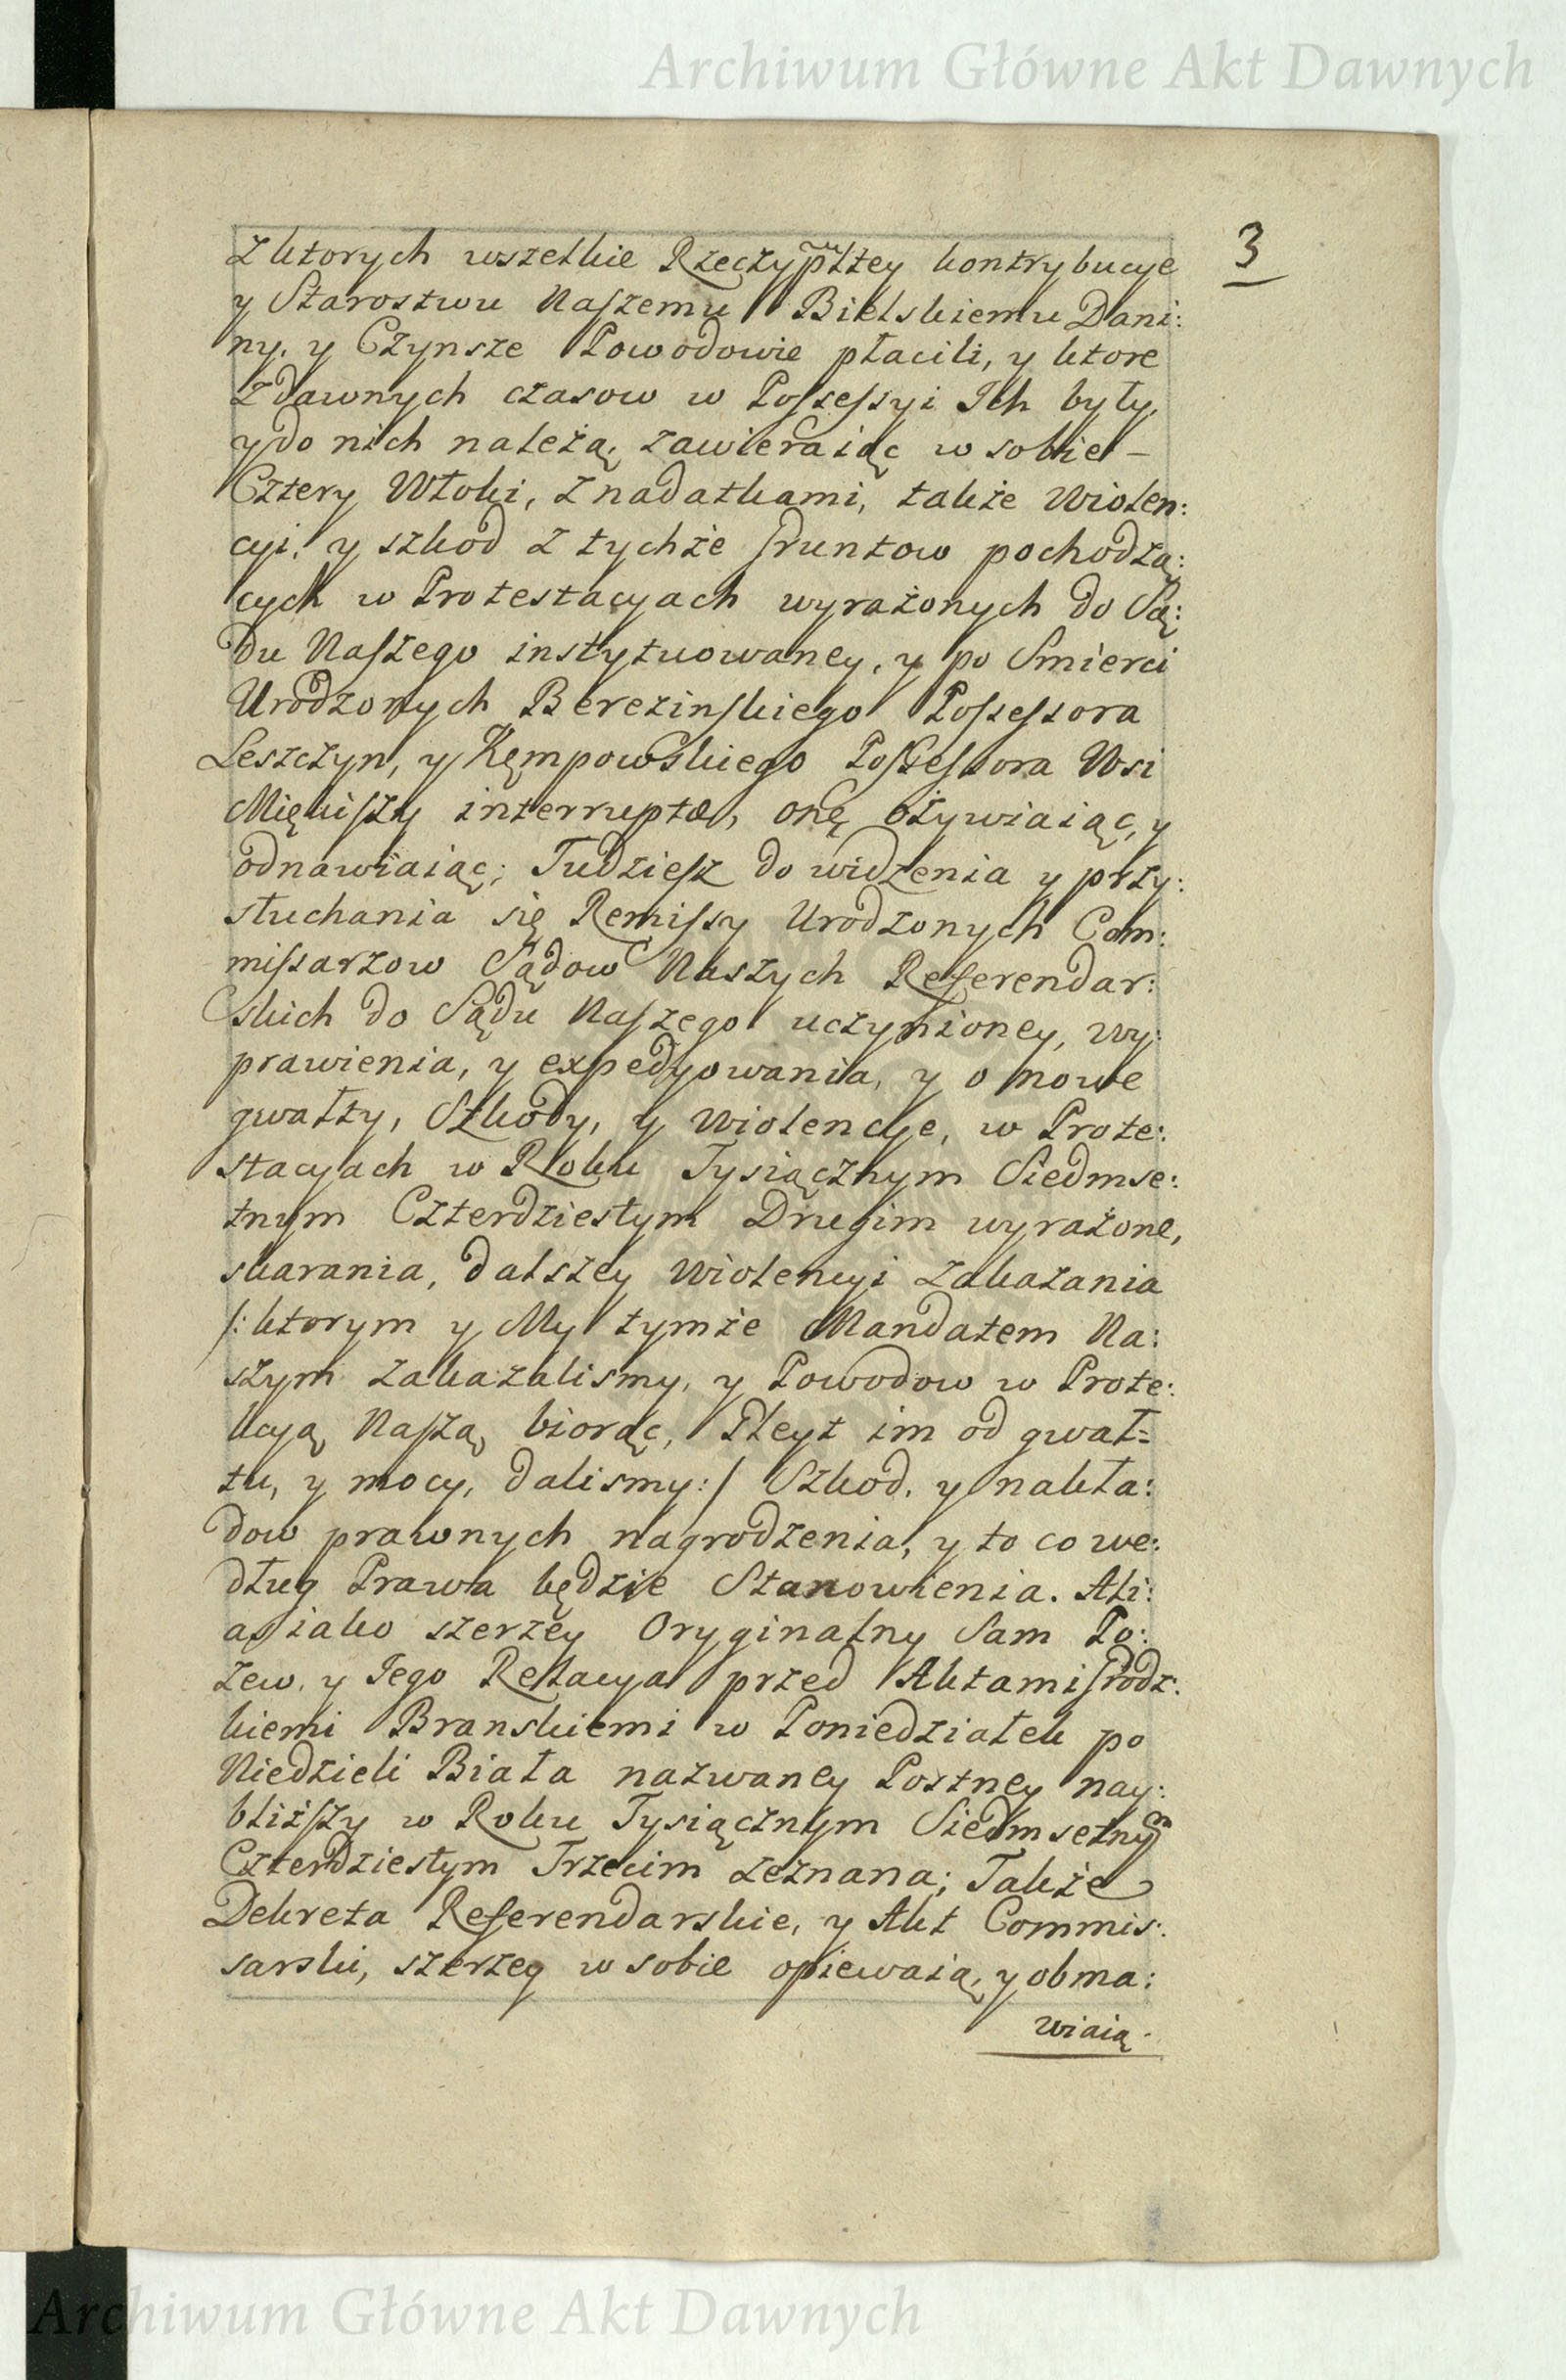 Archiwum Główne Akt Dawnych
3
z ktorych wszelkie Rzeczypltey kontrybucye
y Starostwu Naszemu Bielskiemu Dani:
ny, y Czynsze Powodowie płacili, y ktore
z dawnych czasow w Possessyi Ich były,
y do nich należą, zawieraiąc w sobie –
Cztery Włoki, z nadatkami, także Wiolen:
cyi, y szkod z tychże Gruntow pochodzą:
cych w Protestacyach wyrażonych do Są:
du Naszego instytuowaney, y po Smierci
Urodzonych Berezinskiego Possessora
Leszczyn, y Kępowskiego Possessora Wsi
Miękiszy interruptæ, onę ożywiaiąc, y
odnawiaiąc; Tudziesz do widzenia y przy:
słuchania się Remissy Urodzonych Com:
missarzow Sądow Naszych Referendar:
skich do Sądu Naszego uczynioney, wy:
prawienia, y expedyowania, y o nowe
gwałty, Szkody, y Wiolencye, w Prote:
stacyach w Roku Tysiącznym Siedmse:
tnym Czterdziestym Drugim wyrażone,
skarania, dalszey Wiolencyi zakazania
/: ktorym y My tymże Mandatem Na:
szym zakazalismy, y Powodow w Prote:
kcyą Naszą biorąc, Gleyt im od gwał=
tu, y mocy, dalismy :/ Szkod, y nakła:
dow prawnych nagrodzenia, y to co we:
dług Prawa będzie Stanowienia. Ali:
as iako szerzey Oryginalny Sam Po:
zew, y Iego Rellacya przed Aktami Grodz:
kiemi Branskiemi w Poniedziałek po
Niedzieli Biała nazwaney Postney nay:
bliższy w Roku Tysiącznym Siedmsetnym
Czterdziestym Trzecim zeznana; Także
Dekreta Referendarskie, y Akt Commis:
sarski, szerzey w sobie opiewaią, y obma:
wiaią.
Archiwum Główne Akt Dawnych